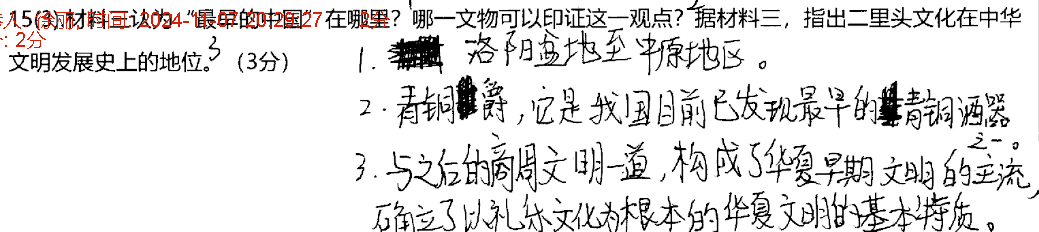 15(3) 材料三认为“最早的中国”在哪里？哪一文物可以印证这一观点？据材料三，指出二里头文化在中华
2分
文明发展史上的地位。3（3分）
1. 洛阳盆地至中原地区。
2. 青铜爵，它是我国目前已发现最早的青铜酒器
之一。
3. 与之后的商周文明一道，构成了华夏早期文明的主流，
确立了以礼乐文化为根本的华夏文明的基本特质。